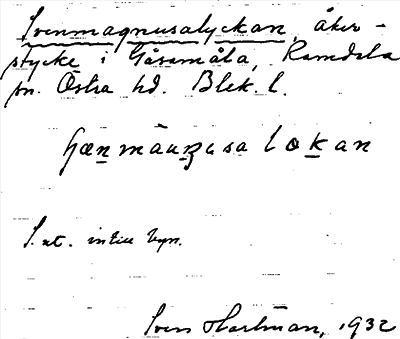 Svenmagnusalyckan, åker-
stycke i Gåsamåla, Ramdala
sn. Östra hd. Blek. l.
mánusa lokan
S. ut. intill byn.
Sven Hartman, 1932